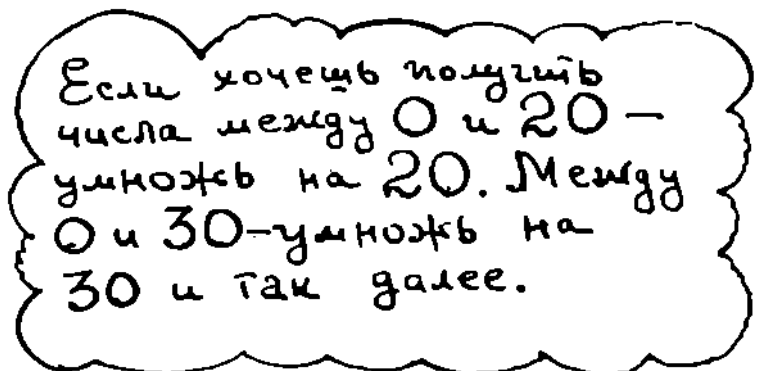 Если хочешь получить
числа между 0 и 20 –
умножь на 20. Между
0 и 30–умножь на
30 и так далее.